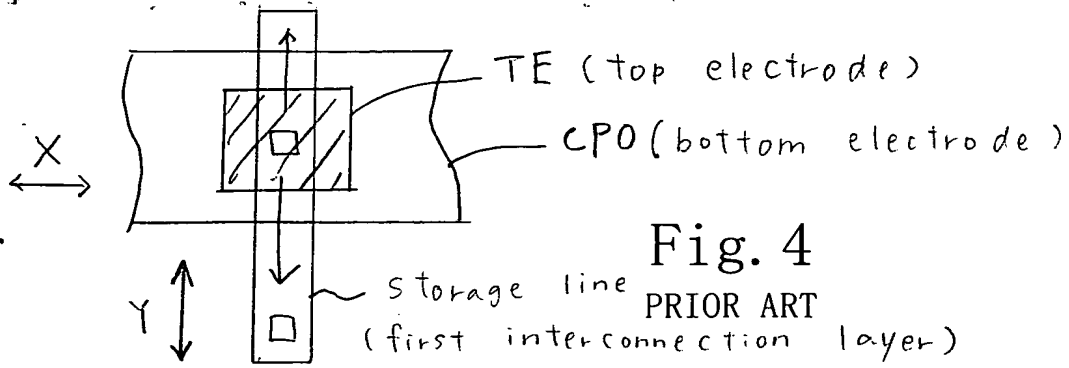 TE (top electrode)
CPO (bottom electrode)
X
Fig. 4
PRIOR ART
Y
storage line
(first interconnection layer)